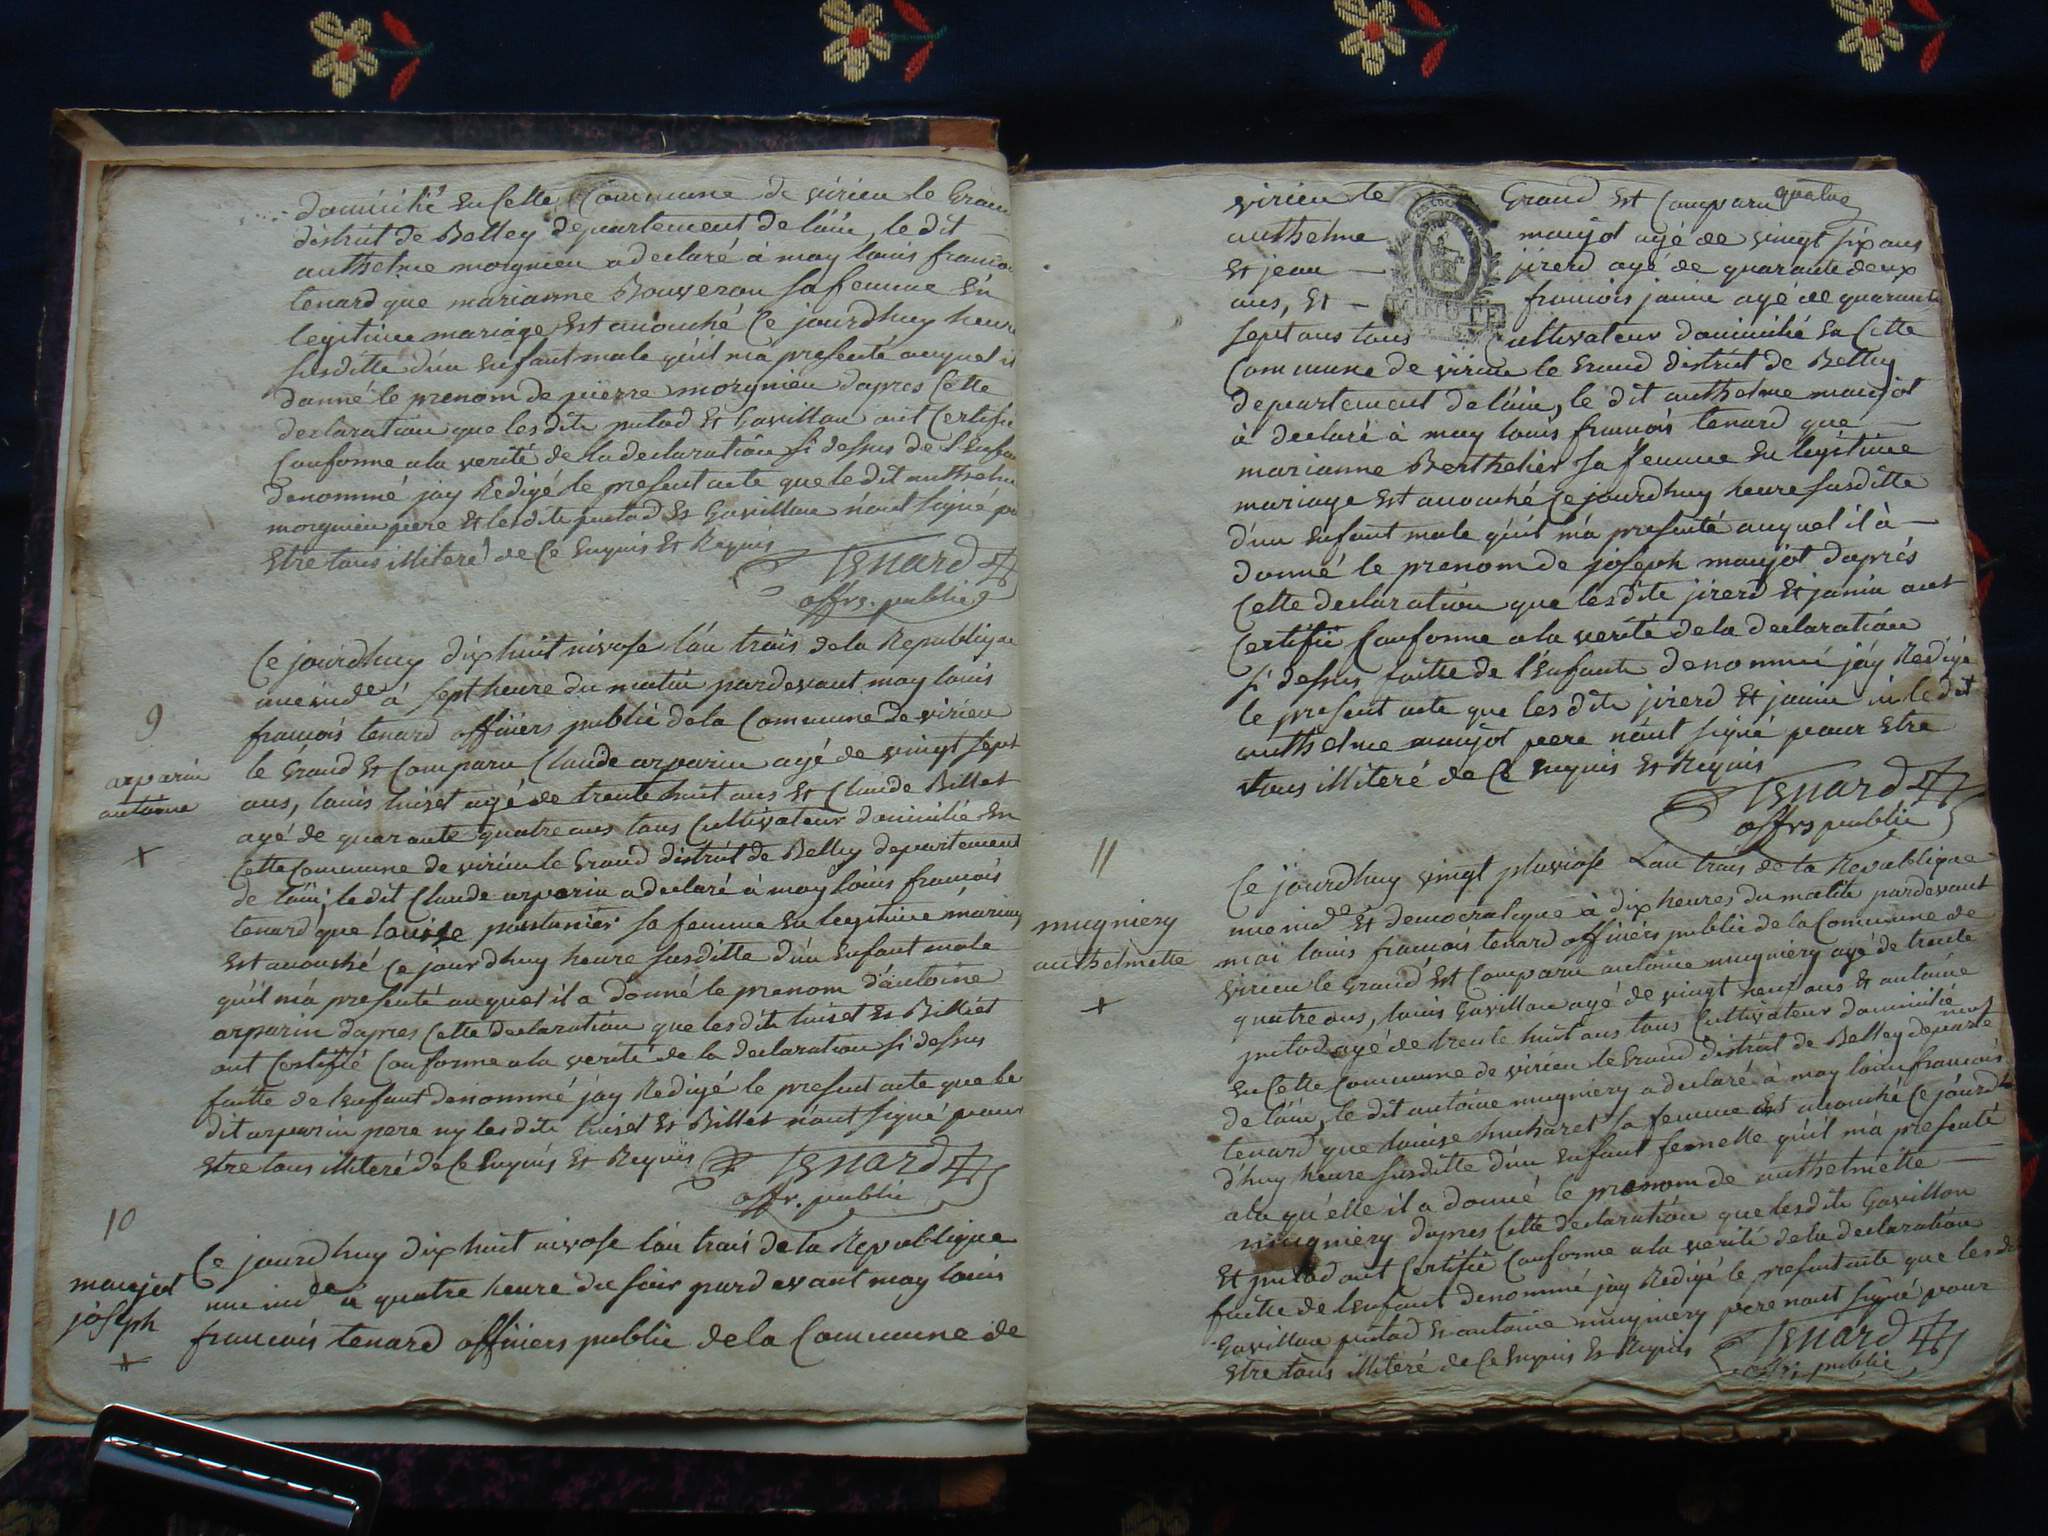 domicilié en Cette Commune de virieu le Grand
district de Belley departement de l'ain, le dit
anthelme morgnieu a declaré à moy louis francois
tenard que marianne Bouveron sa femme En
legitime mariage Est acouché Ce jourdhuy heure
susditte d'un Enfant male qu'il ma presenté auquel il
donné le prenom de pierre morgnieu dapres Cette
declaration que lesdits putod Et Gavillon ont Certifié
Conforme a la verité de la declaration si dessus de l'Enfant
denommé jay Redigé le present acte que le dit anthelme
morgnieu pere Et lesdits putod Et Gavillon n'ont signé pour
Etre tous illiteré de Ce Enquis Et Requis
Tenard
offrs. public
Ce jourdhuy dix huit nivose l'an trois de la Republique
une ind.de à sept heure du matin pardevant moy louis
francois tenard officiers public de la Commune de virieu
9
le Grand Et Comparu Claude arparin agé de vingt sept
arparin
antoine
ans, louis huiset agé de trente huit ans Et Claude Billet
agé de quarante quatre ans tous Cultivateur domicilié En
+
Cette Commune de virieu le Grand district de Belley departement
de l'ain, le dit Claude arparin a declaré à moy louis francois
tenard que louise sa femme En legitime mariage
Est acouché Ce jourdhuy heure susditte d'un Enfant male
qu'il m'a presenté auquel il a donné le prenom d'antoine
arparin dapres Cette declaration que lesdits huiset Et Billiet
ont Certifié Conforme a la verité de la declaration si dessus
faitte de l'enfant denommé jay Redigé le present acte que le
dit arparin pere ny lesdits huiset Et Billet n'ont signé pour
Etre tous illiteré de Ce Enquis Et Requis Tenard
offr. public
10
Ce jourdhuy dix huit nivose l'an trois de la Republique
maujot
joseph
+
une ind.de à quatre heure du soir pardevant moy louis
francois tenard officiers public de la Commune de
virieu le Grand Et Comparu quatre
anthelme maujot agé de vingt six ans
Et jean jirerd agé de quarante deux
ans, Et francois janin agé de quarante
MINUTE
sept ans tous Cultivateur domicilié En Cette
Commune de virieu le Grand district de Belley
departement de l'ain, le dit anthelme maujot
à declaré à moy louis francois tenard que
marianne Berthelier sa femme En legitime
mariage Est acouché Ce jourdhuy heure susditte
d'un Enfant male qu'il m'a presenté auquel il à
donné le prenom de joseph maujot daprés
Cette declaration que lesdits jirerd Et janin ont
Certifié Conforme a la verité de la declaration
si dessus faitte de l'Enfant denommé j'ay Redigé
le present acte que les dits jirerd Et janin ni le dit
anthelme maujot pere n'ont signé pour Etre
tous illiteré de Ce Enquis Et Requis
Tenard
offrs public
11
Ce jourdhuy vingt pluviose L'an trois de la Republique
une ind.de Et democratique à dix heures du matin pardevant
mugniery
anthelmette
+
moi louis francois tenard officiers public de la Commune de
virieu le Grand Est Comparu antoine mugniery agé de trente
quatre ans, louis Gavillon agé de vingt neuf ans Et antoine
putod agé de trente huit ans tous Cultivateur domicilié
En Cette Commune de virieu le Grand district de Belley departement
de l'ain, le dit antoine mugniery a declaré à moy louis francois
tenard que louise sa femme Est acouché Ce jourd
d'huy heure susditte d'un Enfant femelle qu'il m'a presenté
a la qu'elle il a donné le prenom de anthelmette
mugniery dapres Cette declaration que lesdits Gavillon
Et putod ont Certifié Conforme a la verité de la declaration
faitte de l'enfant denommé jay Redigé le present acte que les dits
Gavillon putod Et antoine mugniery pere n'ont signé pour
Etre tous illiteré de Ce Enquis Et Requis Tenard
offrs public